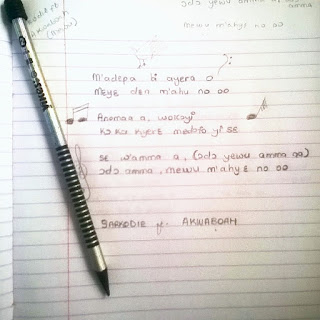 ɔdɔ yewu amma aa
mewu m'ahyɛ no oo
Akwaboah
M'adepa bi ayera o
Mɛyɛ dɛn m'ahu no oo
Anomaa a, wokɔyi
Kɔ ka kyerɛ medɔfo yi sɛ
sɛ w'amma a, (ɔdɔ yewu amma aa)
ɔdɔ amma, mewu m'ahyɛ no oo
SARKODIE ft. AKWABOAH